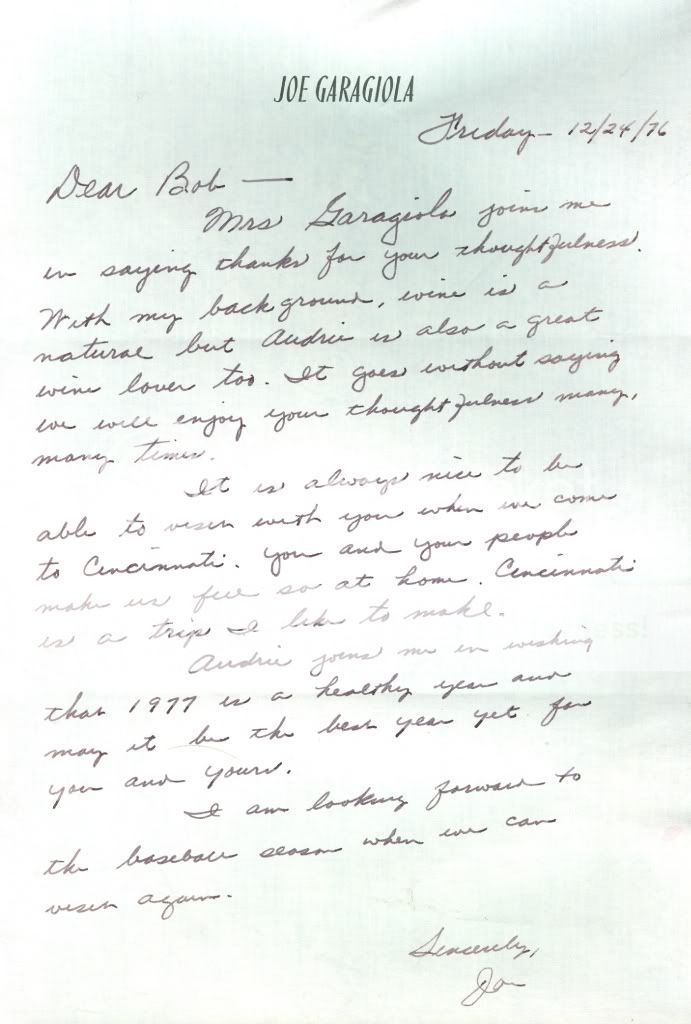 JOE GARAGIOLA
Friday - 12/24/76
Dear Bob —
Mrs Garagiola joins me
in saying thanks for your thoughtfulness.
With my background, wine is a
natural but Audrie is also a great
wine lover too. It goes without saying
we will enjoy your thoughtfulness many,
many times.
It is always nice to be
able to visit with you when we come
to Cincinnati. You and your people
make us feel so at home. Cincinnati
is a trip I like to make.
Audrie joins me in wishing
that 1977 is a healthy year and
may it be the best year yet for
you and yours.
I am looking forward to
the baseball season when we can
visit again.
Sincerely,
Joe